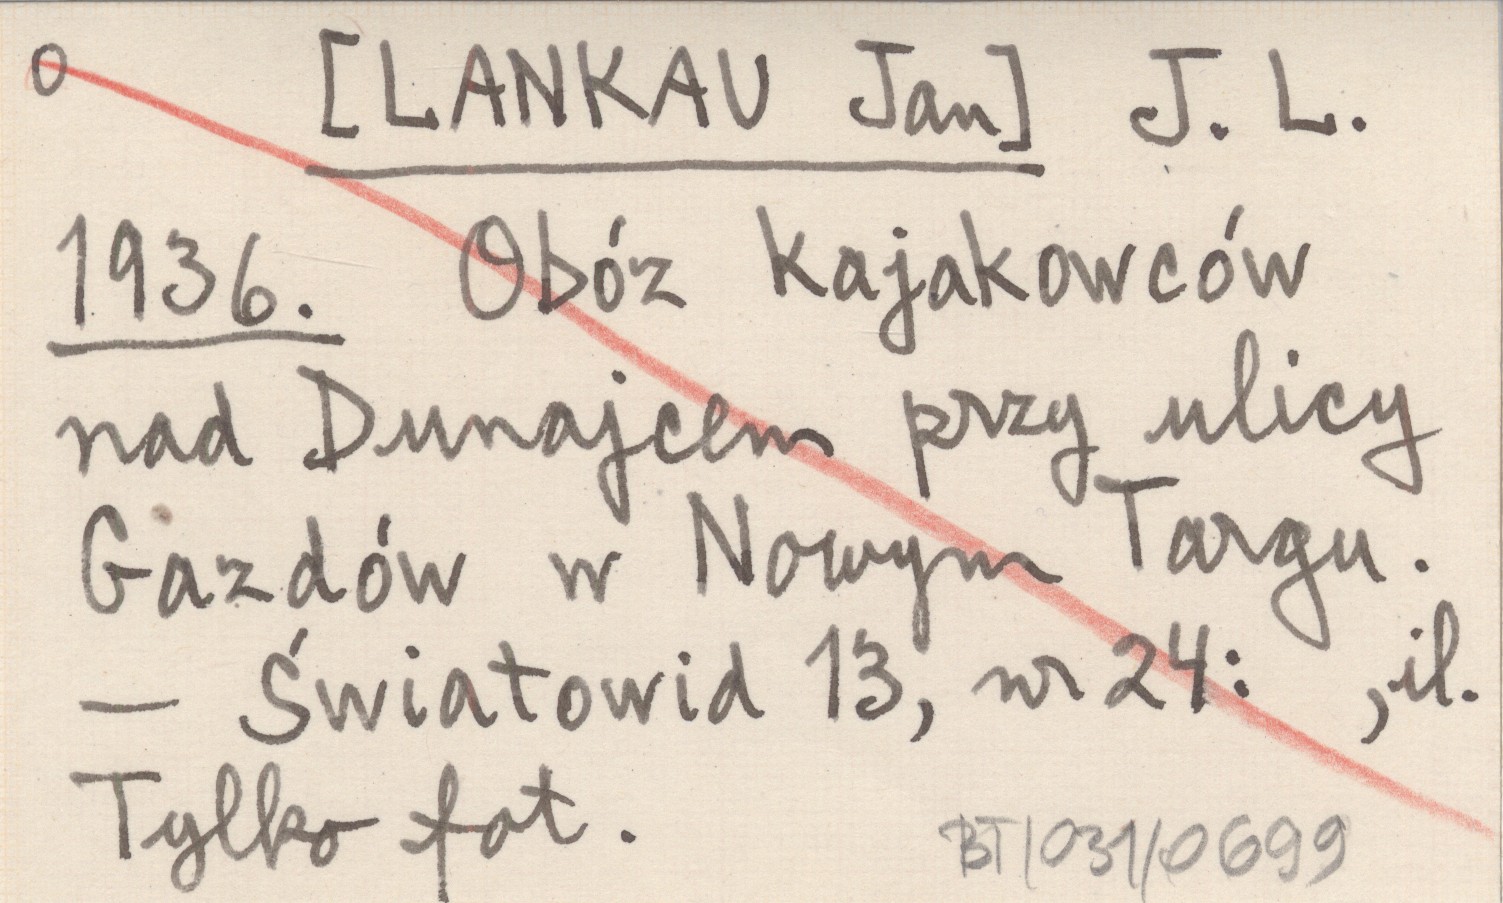 0 [LANKAU Jan] J. L.
1936. Obóz kajakowców
nad Dunajcem przy ulicy
Gazdów w Nowym Targu.
— Światowid 13, nr 24: , il.
Tylko fot.
BT/031/0699